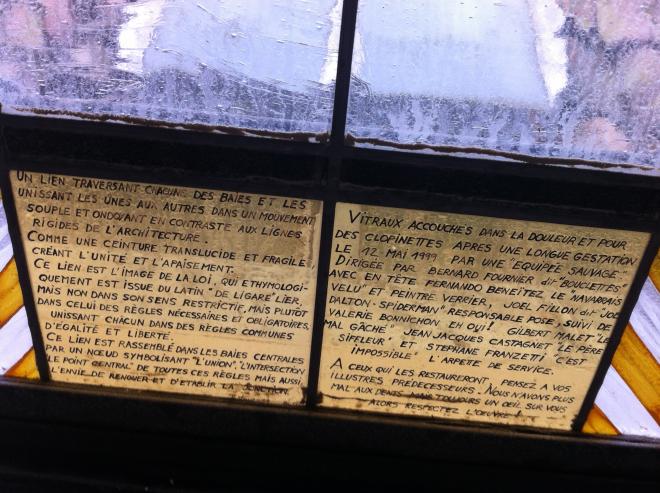 UN LIEN TRAVERSANT CHACUNE DES BAIES ET LES
UNISSANT LES UNES AUX AUTRES DANS UN MOUVEMENT
SOUPLE ET ONDOYANT EN CONTRASTE AUX LIGNES
RIGIDES DE L'ARCHITECTURE.
COMME UNE CEINTURE TRANSLUCIDE ET FRAGILE,
CRÉANT L'UNITÉ ET L'APAISEMENT.
CE LIEN EST L'IMAGE DE LA LOI, QUI ETHYMOLOGI-
QUEMENT EST ISSUE DU LATIN "DE LIGARE" LIER,
MAIS NON DANS SON SENS RESTRICTIF, MAIS PLUTÔT
DANS CELUI DES RÈGLES NÉCESSAIRES ET OBLIGATOIRES,
UNISSANT CHACUN DANS DES RÈGLES COMMUNES
D'ÉGALITÉ ET LIBERTÉ.
CE LIEN EST RASSEMBLÉ DANS LES BAIES CENTRALES
PAR UN NŒUD SYMBOLISANT "L'UNION", L'INTERSECTION
LE POINT CENTRAL DE TOUTES CES RÈGLES MAIS AUSSI
L'ENVIE DE RENOUER ET D'ETABLIR LA
VITRAUX ACCOUCHÉS DANS LA DOULEUR ET POUR
DES CLOPINETTES APRES UNE LONGUE GESTATION
LE 12 MAI 1999 PAR UNE "EQUIPÉE SAUVAGE"
DIRIGÉE PAR BERNARD FOURNIER dit "BOUCLETTES"
AVEC EN TÊTE FERNANDO BENEITEZ LE "NAVARRAIS
VELU" ET PEINTRE VERRIER, JOEL FILLON dit "JOE
DALTON-SPIDERMAN" RESPONSABLE POSE, SUIVI DE
VALERIE BONNICHON EH OUI! GILBERT MALET "LE
MAL GÂCHÉ" JEAN JACQUES CASTAGNET "LE PÈRE
SIFFLEUR" ET STEPHANE FRANZETTI "C'EST
IMPOSSIBLE" L'ARPETE DE SERVICE.
A CEUX QUI LES RESTAURERONT, PENSEZ A VOS
ILLUSTRES PREDECESSEURS. NOUS N'AVONS PLUS
MAL AUX DENTS MAIS TOUJOURS UN OEIL SUR VOUS
ALORS RESPECTEZ L'OEUVRE!